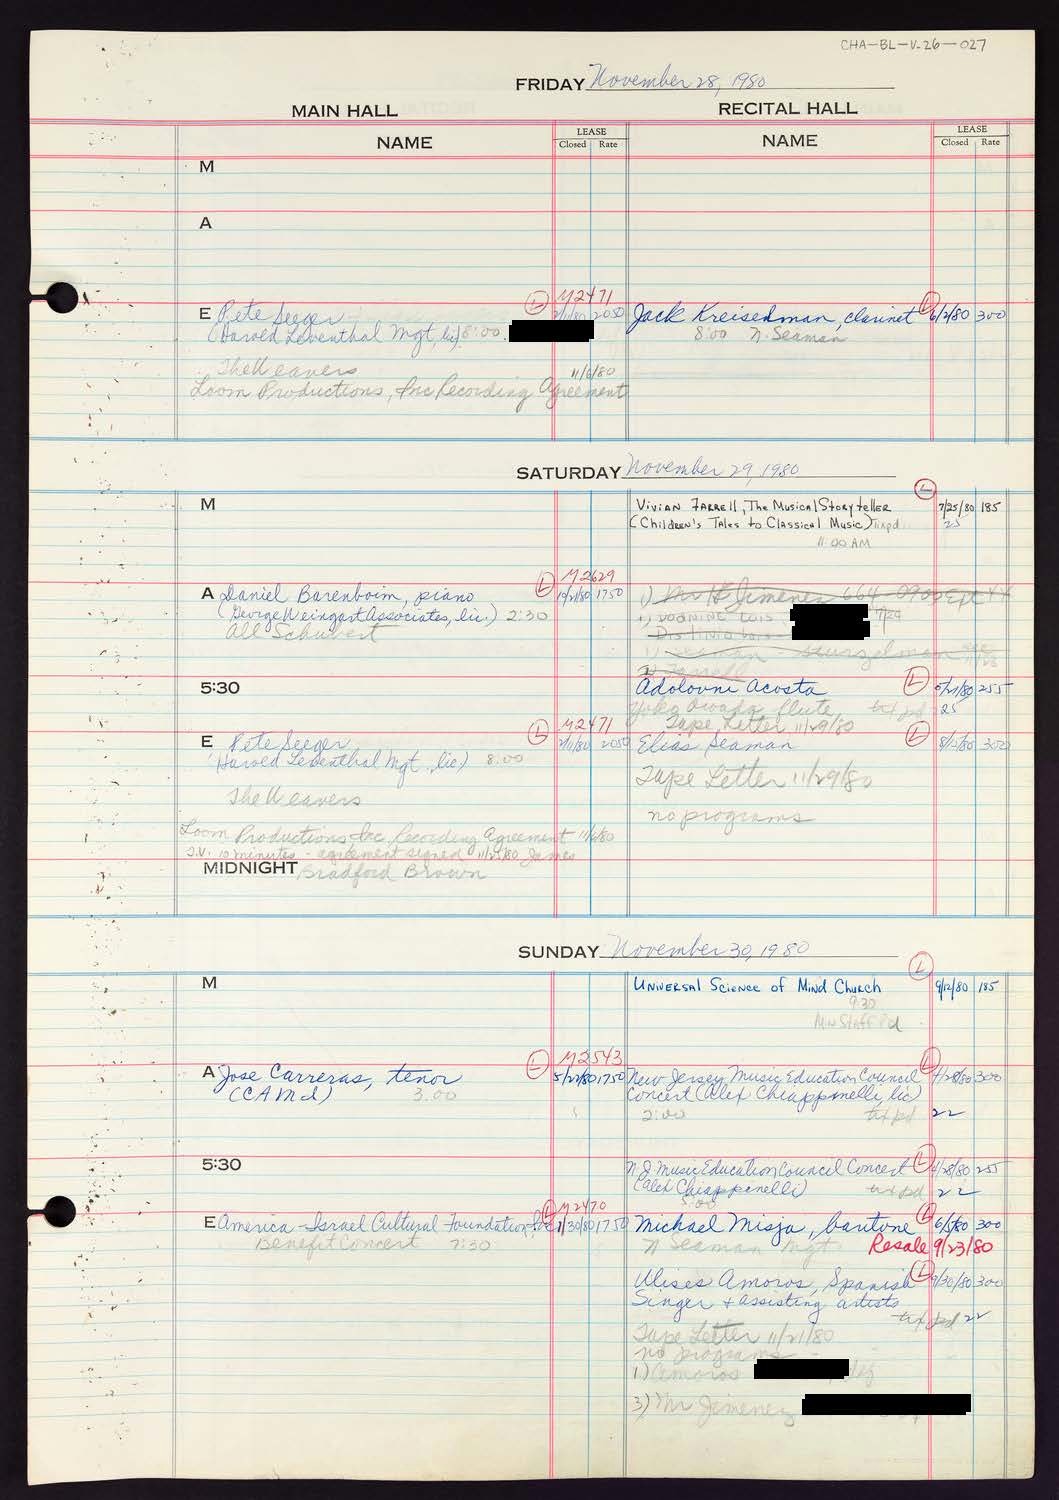 CHA-BL-V-26-027
FRIDAY November 28, 1980
MAIN HALL
RECITAL HALL
NAME
LEASE
Closed Rate
NAME
LEASE
Closed Rate
M
A
M2471
E Pete Seeger L 2/11/80 2050
(Harold Leventhal Mgt, Inc) 8:00
The Weavers
11/6/80
Loom Productions, Inc Recording Agreement
Jack Kreiselman, clarinet L 6/2/80 300
8:00 N. Seaman
SATURDAY November 29, 1980
M
L
Vivian Farrell, The Musical Storyteller 7/25/80 185
(Children's Tales to Classical Music) tixpd 25
11:00 AM
M2629
A Daniel Barenboim, piano L 10/21/80 1750
(George Weingart Associates, Inc.) 2:30
All Schubert
1) Mr H Jimenez 664-0900 Ext 44
7/24
1) Seaman - Sturzelman
2) Farrell
5:30
Adolovni Acosta L 255
flute tix pd 25
Tape Letter 11/29/80
M2471
E Pete Seeger L 2/11/80 2050
(Harold Leventhal Mgt, Inc) 8:00
The Weavers
Loom Productions, Inc, Recording Agreement 11/6/80
T.V. 10 minutes - agreement signed 11/25/80 James
MIDNIGHT Bradford Brown
Elias Seaman L 300
Tape Letter 11/29/80
no programs
SUNDAY November 30, 1980
M
L
Universal Science of Mind Church 9/12/80 185
9:30
Min Staff Pd
M2543
A Jose Carreras, tenor L 5/22/80 1750
(CAMI) 3:00
L
New Jersey Music Education Council 4/28/80 300
Concert (Alex Chiappinelli, Inc)
2:00 tix pd 22
5:30
N J Music Education Council Concert L 4/28/80 255
(Alex Chiappinelli) tix pd 22
5:00
M2470
E America-Israel Cultural Foundation, Inc L 1/30/80 1750
Benefit Concert 7:30
Michael Misja, baritone L 6/5/80 300
N Seaman Mgt Resale 9/23/80
Ulises Amoros, Spanish L 9/30/80 300
Singer + assisting artists
tix pd 22
Tape Letter 11/21/80
no programs -
1) Amoros
3) Mr Jimenez